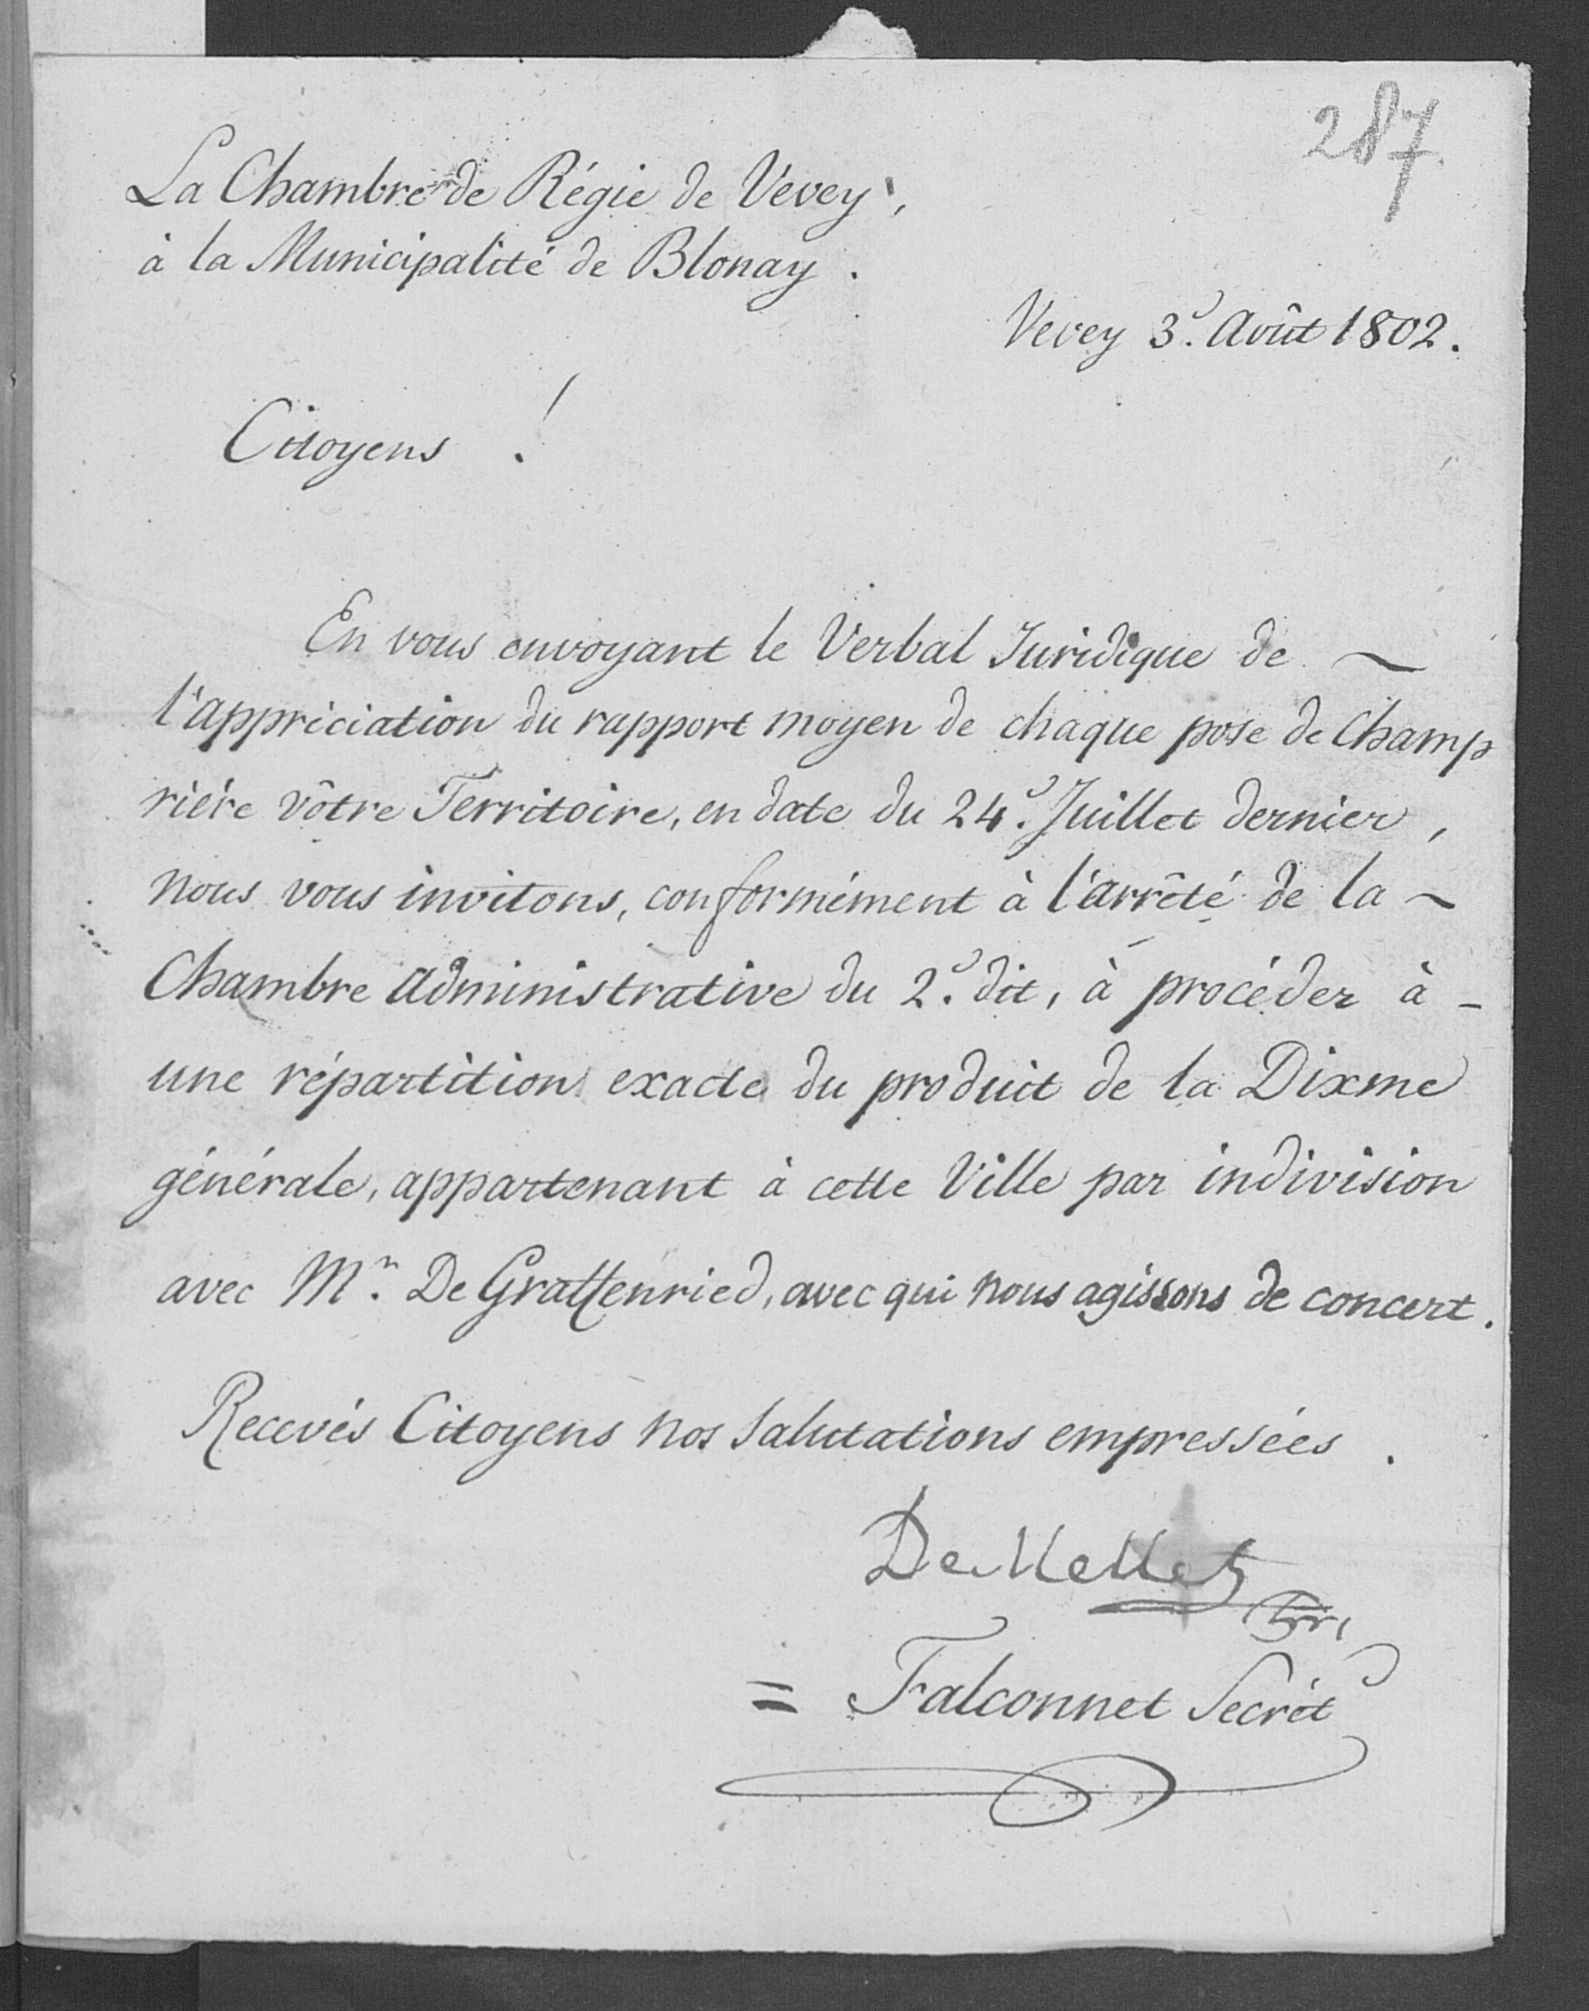 287.
La Chambre de Régie de Vevey,
à la Municipalité de Blonay.
Vevey 3.e Août 1802.
Citoyens !
En vous envoyant le Verbal Juridique de ~
l'appréciation du rapport moyen de chaque pose de Champ
riére vôtre Territoire, en date du 24.e Juillet dernier,
nous vous invitons, conformément à l'arrêté de la ~
Chambre administrative du 2.e dit, à procéder à -
une répartition exacte du produit de la Dixme
générale, appartenant à cette Ville par indivision
avec M.r De Graffenried, avec qui nous agissons de concert.
Recevés Citoyens nos salutations empressées.
De Mellet
= Falconnet Secrét